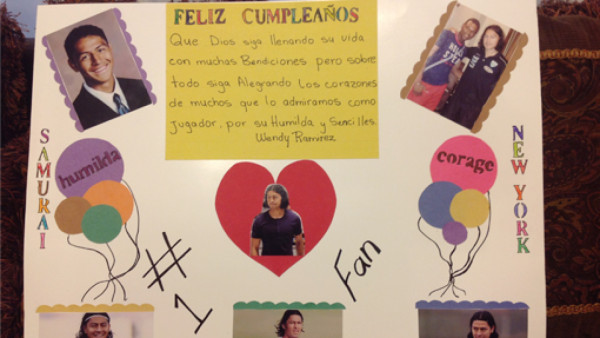 FELIZ CUMPLEAÑOS
Que Dios siga llenando su vida
con muchas Bendiciones pero sobre
todo siga Alegrando Los corazones
de muchos que lo admiramos como
jugador, por su Humilda y Sencilles
Wendy Ramirez
SAMURAI
humilda
corage
NEW YORK
#1
Fan